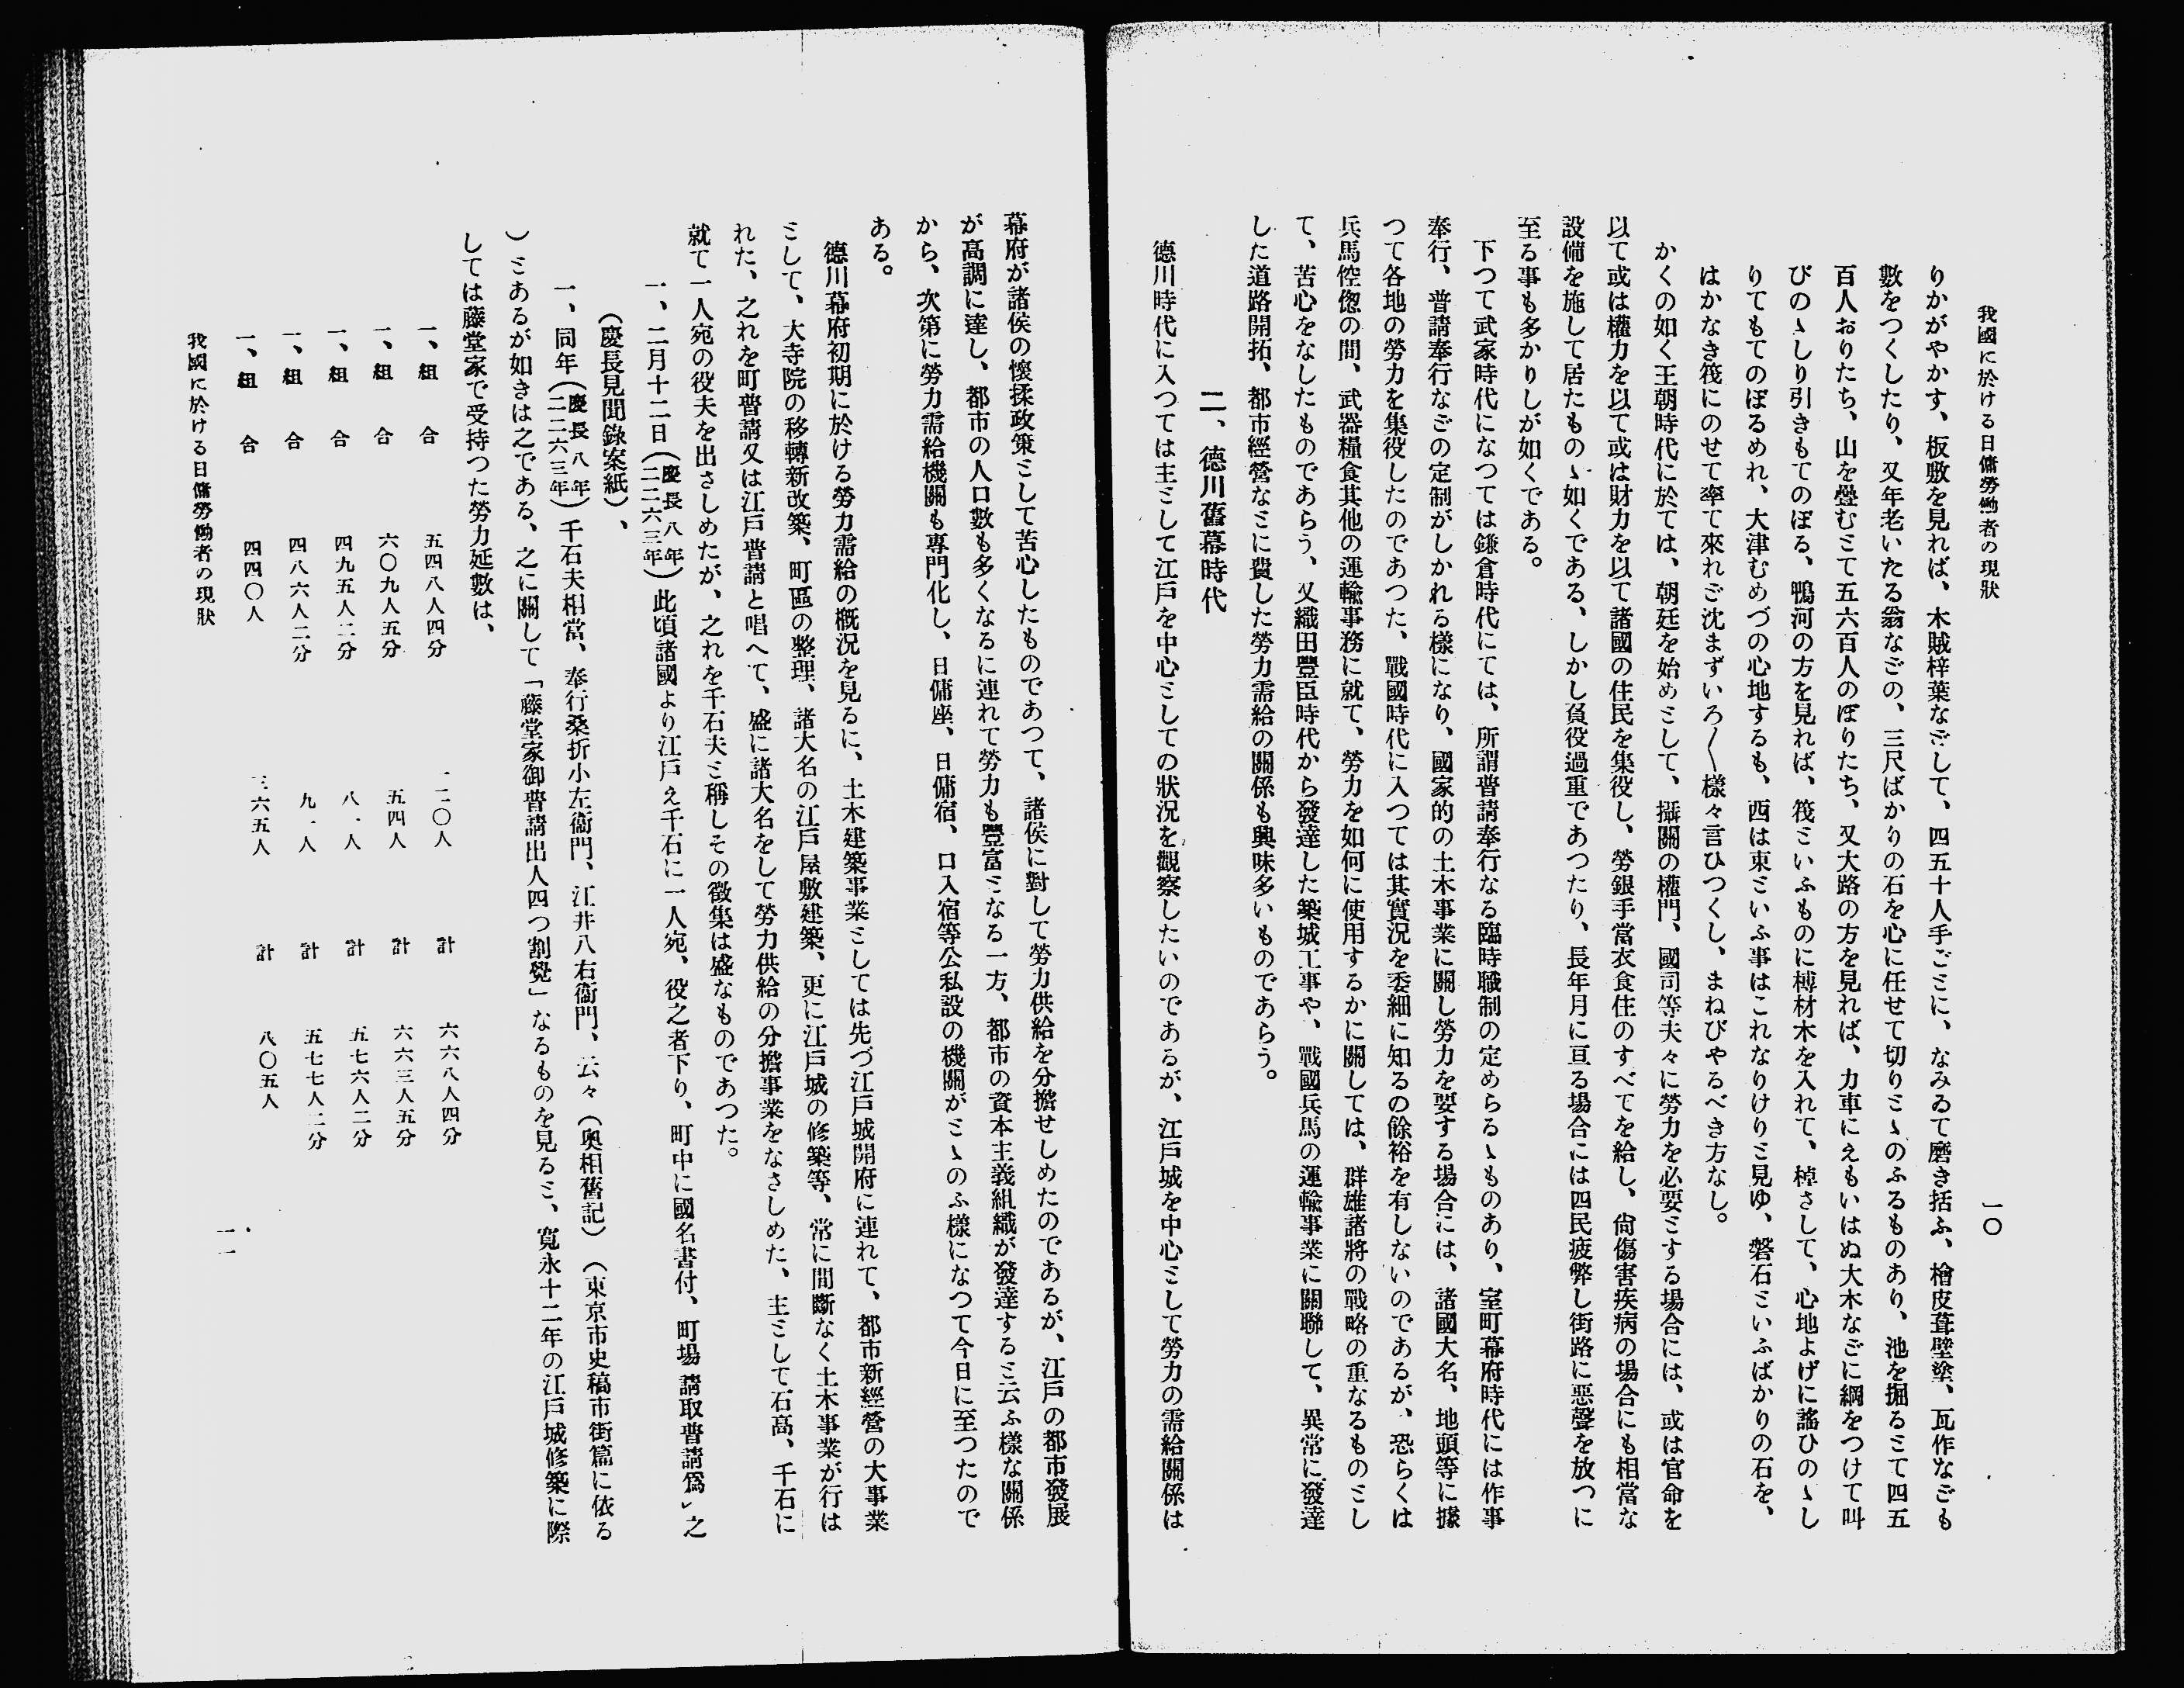 我國に於ける日傭勞働者の現狀
一〇
りかがやかす、板敷を見れば、木賊梓葉なごして、四五十人手ごミに、なみゐて磨き括ふ、檜皮葺壁塗、瓦作なごも
數をつくしたり、又年老いたる翁なごの、三尺ばかりの石を心に任せて切りミゝのふるものあり、池を掘るミて四五
百人おりたち、山を疊むミて五六百人のぼりたち、又大路の方を見れば、力車にえもいはぬ大木なごに綱をつけて叫
びのゝしり引きもてのぼる、鴨河の方を見れば、筏ミいふものに榑材木を入れて、棹さして、心地よげに謠ひのゝし
りてもてのぼるめれ、大津むめづの心地するも、西は東ミいふ事はこれなりけりミ見ゆ、磐石ミいふばかりの石を、
はかなき筏にのせて率て來れご沈まずいろ〱樣々言ひつくし、まねびやるべき方なし。
かくの如く王朝時代に於ては、朝廷を始めミして、攝關の權門、國司等夫々に勞力を必要ミする場合には、或は官命を
以て或は權力を以て或は財力を以て諸國の住民を集役し、勞銀手當衣食住のすべてを給し、尙傷害疾病の場合にも相當な
設備を施して居たものゝ如くである、しかし負役過重であつたり、長年月に亘る場合には四民疲弊し街路に惡聲を放つに
至る事も多かりしが如くである。
下つて武家時代になつては鎌倉時代にては、所謂普請奉行なる臨時職制の定めらるゝものあり、室町幕府時代には作事
奉行、普請奉行なごの定制がしかれる樣になり、國家的の土木事業に關し勞力を要する場合には、諸國大名、地頭等に據
つて各地の勞力を集役したのであつた、戰國時代に入つては其實況を委細に知るの餘裕を有しないのであるが、恐らくは
兵馬倥偬の間、武器糧食其他の運輸事務に就て、勞力を如何に使用するかに關しては、群雄諸將の戰略の重なるものミし
て、苦心をなしたものであらう、又織田豐臣時代から發達した築城工事や、戰國兵馬の運輸事業に關聯して、異常に發達
した道路開拓、都市經營なミに費した勞力需給の關係も興味多いものであらう。
二、德川舊幕時代
德川時代に入つては主ミして江戶を中心ミしての狀況を觀察したいのであるが、江戶城を中心ミして勞力の需給關係は
幕府が諸侯の懷揉政策ミして苦心したものであつて、諸侯に對して勞力供給を分擔せしめたのであるが、江戶の都市發展
が高調に達し、都市の人口數も多くなるに連れて勞力も豐富ミなる一方、都市の資本主義組織が發達するミ云ふ樣な關係
から、次第に勞力需給機關も專門化し、日傭座、日傭宿、口入宿等公私設の機關がミゝのふ樣になつて今日に至つたので
ある。
德川幕府初期に於ける勞力需給の槪況を見るに、土木建築事業ミしては先づ江戶城開府に連れて、都市新經營の大事業
ミして、大寺院の移轉新改築、町區の整理、諸大名の江戶屋敷建築、更に江戶城の修築等、常に間斷なく土木事業が行は
れた、之れを町普請又は江戶普請と唱へて、盛に諸大名をして勞力供給の分擔事業をなさしめた、主ミして石高、千石に
就て一人宛の役夫を出さしめたが、之れを千石夫ミ稱しその徵集は盛なものであつた。
一、二月十二日(慶長八年(二二六三年)此頃諸國より江戶え千石に一人宛、役之者下り、町中に國名書付、町場請取普請爲ㇾ之
(慶長見聞錄案紙)、
一、同年(慶長八年(二二六三年)千石夫相當、奉行桑折小左衞門、江井八右衞門、云々(奧相舊記)(東京市史稿市街篇に依る
)ミあるが如きは之である、之に關して「藤堂家御普請出人四つ割覺」なるものを見るミ、寬永十二年の江戶城修築に際
しては藤堂家で受持つた勞力延數は、
一、組合 五四八人四分 一二〇人 計 六六八人四分
一、組合 六〇九人五分 五四人 計 六六三人五分
一、組合 四九五人二分 八一人 計 五七六人二分
一、組合 四八六人二分 九一人 計 五七七人二分
一、組合 四四〇人 三六五人 計 八〇五人
我國に於ける日傭勞働者の現狀
一一